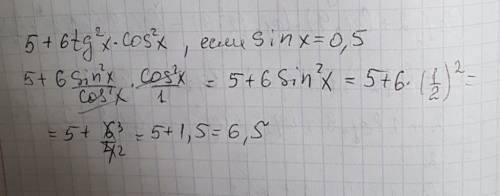 5 + 6tg²x · cos²x , если sin x = 0,5
5 + 6 sin²x/cos²x · cos²x/1 = 5 + 6 sin²x = 5 + 6 · (1/2)² =
= 5 + 6³/4₂ = 5 + 1,5 = 6,5